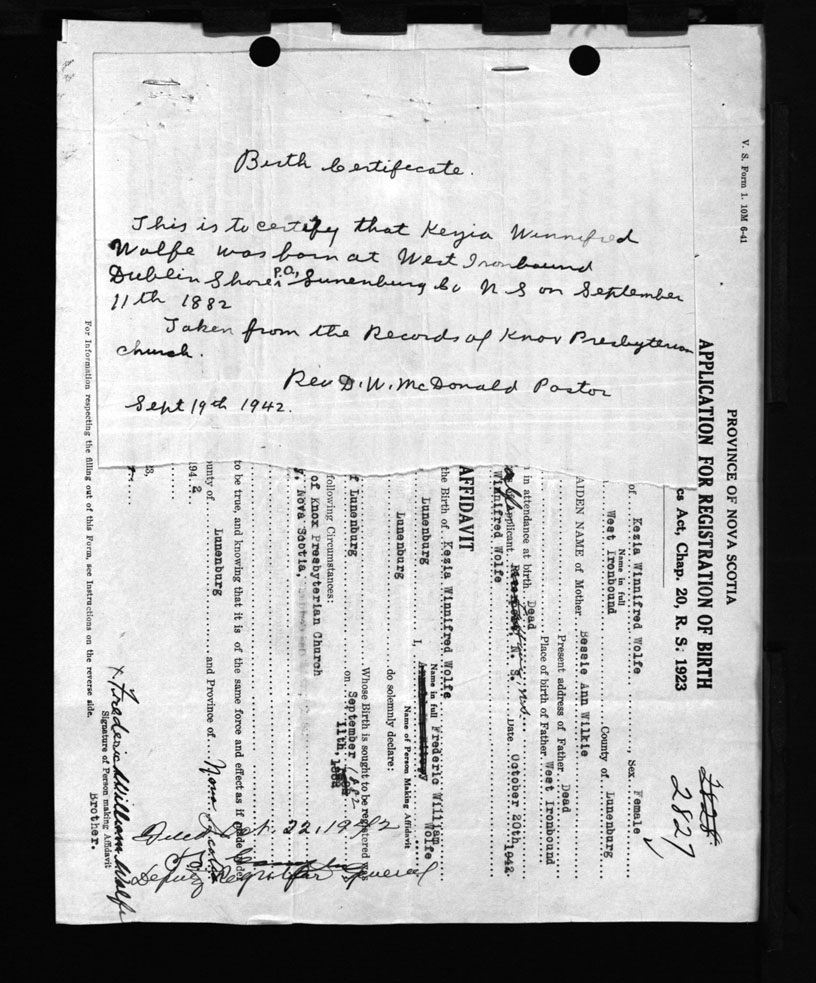 Birth Certificate.
This is to certify that Kezia Winnifred
Wolfe was born at West Ironbound
Dublin Shore P.O, Lunenburg Co N S on September
11th 1882
Taken from the Records of Knox Presbyterian
church.
Rev D. W. McDonald Pastor
Sept 19th 1942.
V. S. Form 1. 10M 6-41
PROVINCE OF NOVA SCOTIA
APPLICATION FOR REGISTRATION OF BIRTH
cs Act, Chap. 20, R. S. 1923
2827
of Kezia Winnifred Wolfe, Sex Female
Name in full
West Ironbound County of Lunenburg
AIDEN NAME of Mother Bessie Ann Wilkie
Present address of Father Dead
Place of birth of Father West Ironbound
in attendance at birth Dead
Applicant N. S. Date October 20th, 1942
Winnifred Wolfe
AFFIDAVIT
the Birth of Kezia Winnifred Wolfe
Name in full
Lunenburg I, Frederic William Wolfe
Name of Person Making Affidavit
Lunenburg do solemnly declare:
Whose Birth is sought to be registered was
f Lunenburg on September 11th, 1882
following Circumstances:
of Knox Presbyterian Church
Nova Scotia,
to be true, and knowing that it is of the same force and effect as if made under
unty of Lunenburg and Province of Nova Scotia
194 2
x Frederic William Wolfe
Signature of Person making Affidavit
Brother.
22, 1942
Deputy Registrar General
For Information respecting the filling out of this Form, see Instructions on the reverse side.